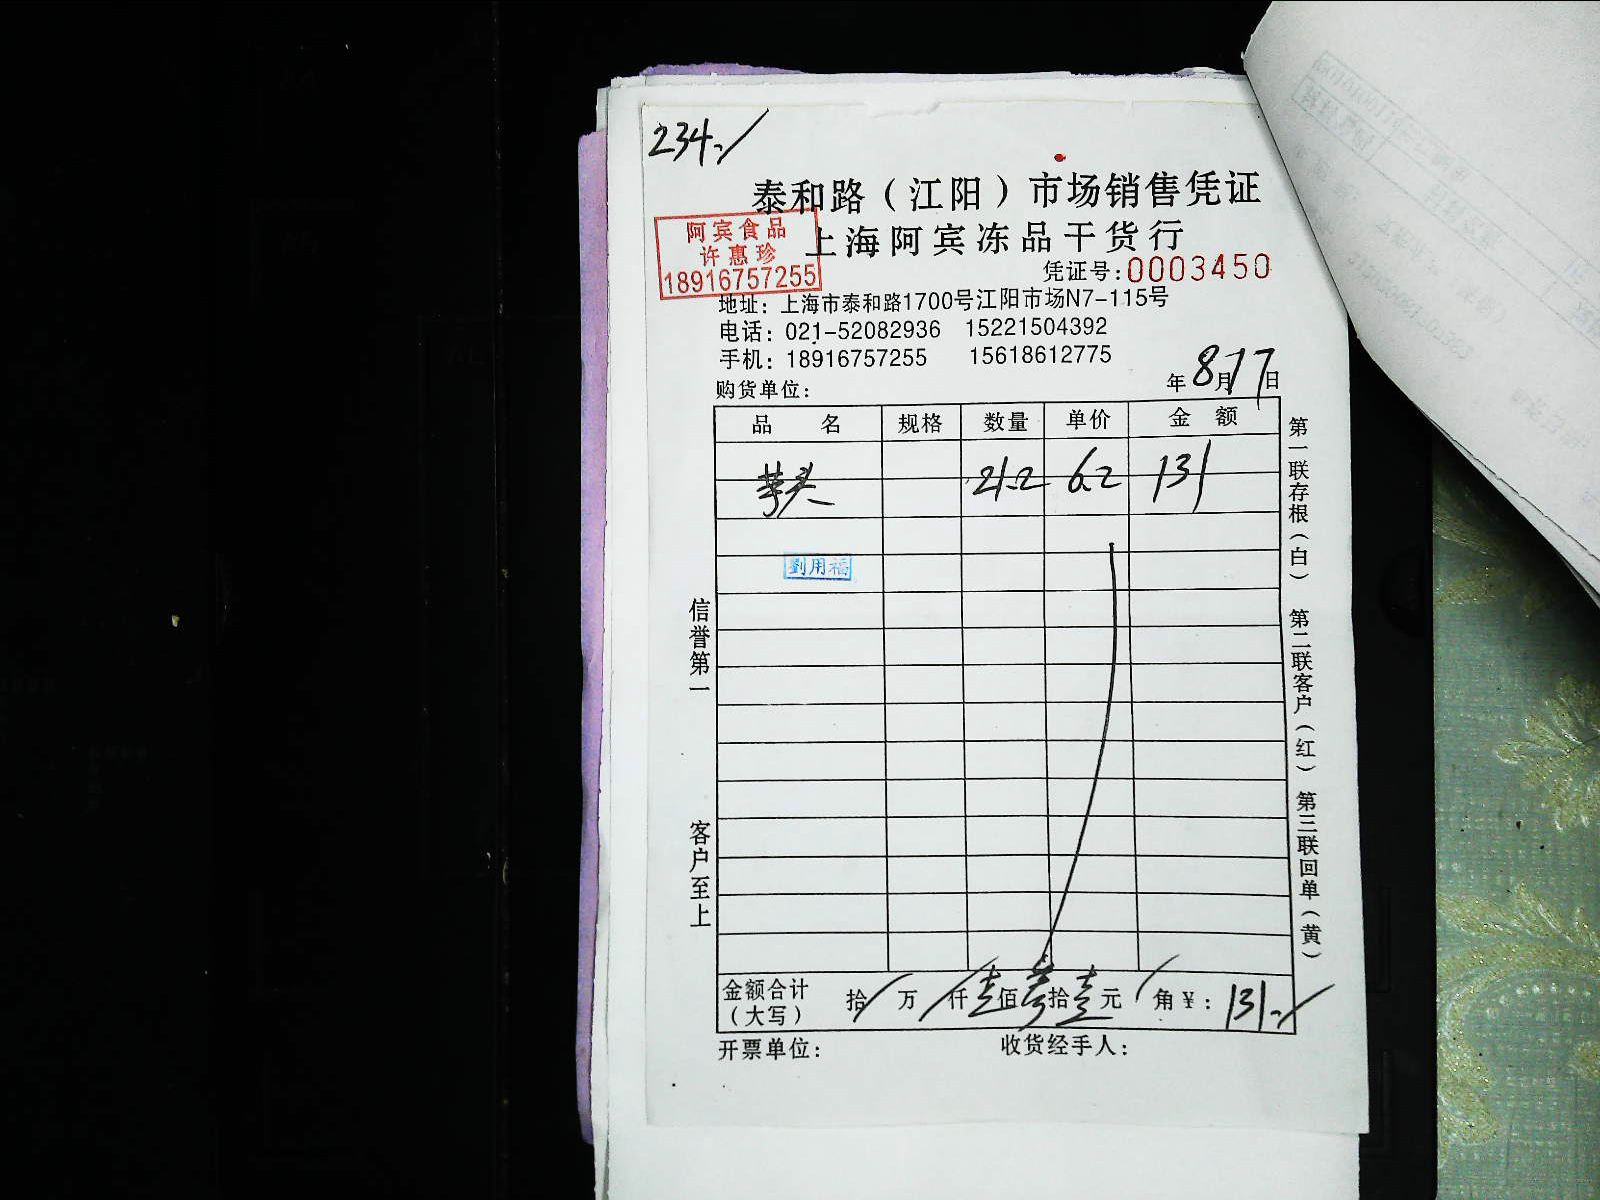 234.-
泰和路（江阳）市场销售凭证
上海阿宾冻品干货行
阿宾食品
许惠珍
18916757255
凭证号：0003450
地址：上海市泰和路1700号江阳市场N7-115号
电话：021-52082936 15221504392
手机：18916757255 15618612775
购货单位： 年8月17日
品 名 规格 数量 单价 金 额
芋头 21.2 6.2 131
劉用福
信誉第一
客户至上
金额合计（大写） 拾 万 仟壹佰叁拾壹元 角￥：131.-
开票单位： 收货经手人：
第一联存根（白） 第二联客户（红） 第三联回单（黄）